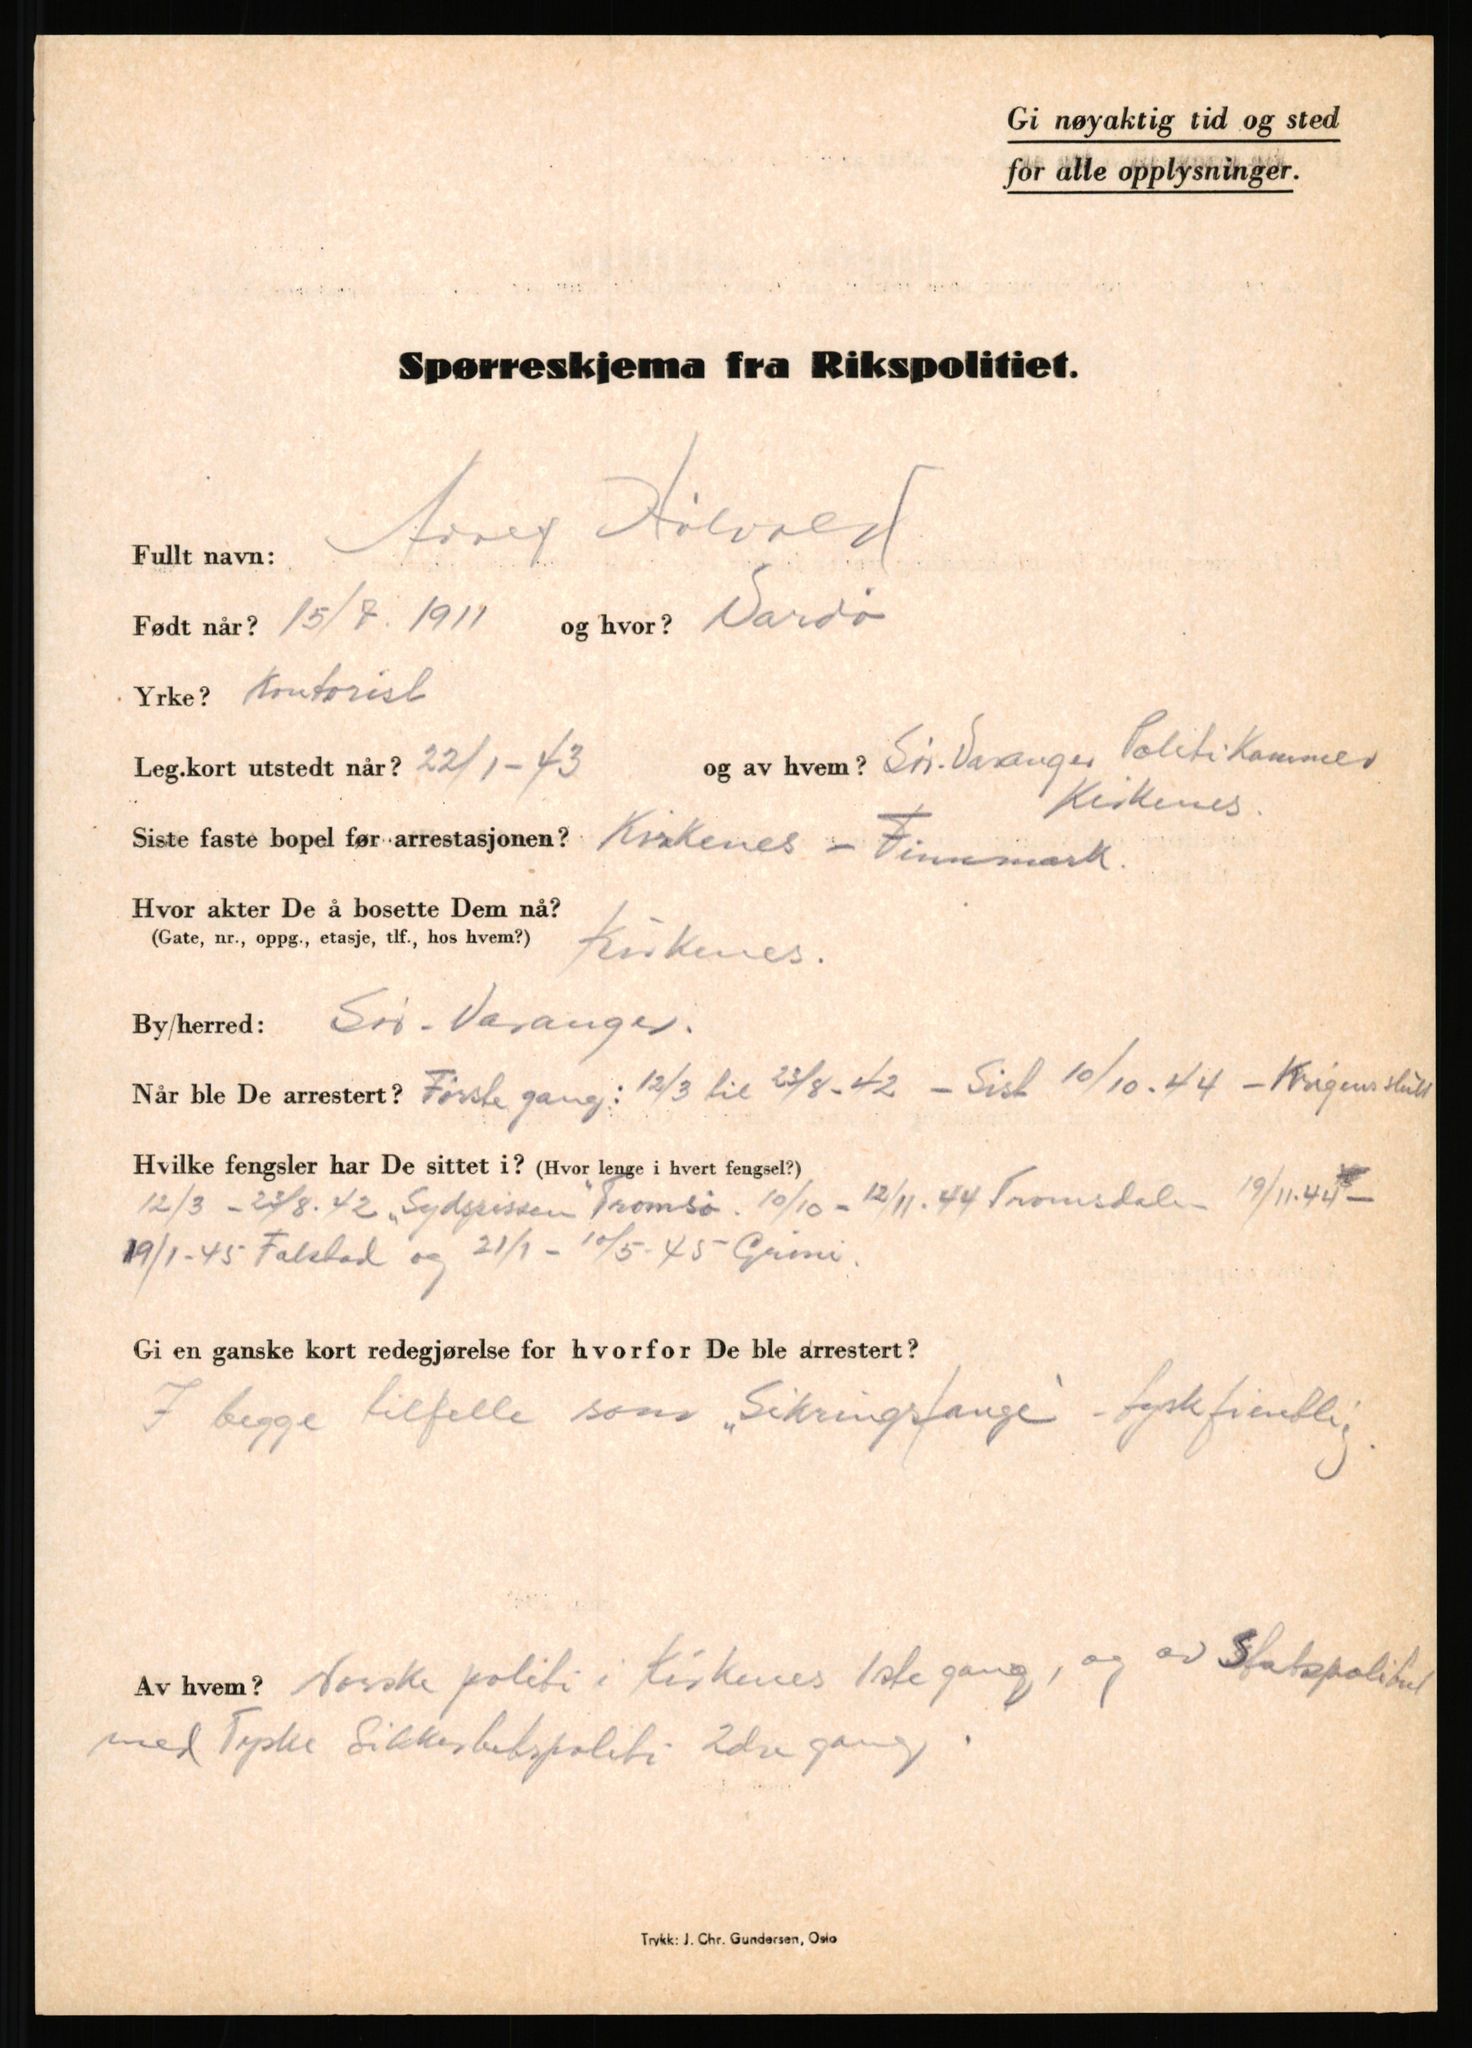 Gi nøyaktig tid og sted
for alle opplysninger.
Spørreskjema fra Rikspolitiet.
Fullt navn: Hølvold
Født når? 15/7. 1911 og hvor? Vardø
Yrke? Kontorist
Leg.kort utstedt når? 22/1-43 og av hvem? Sør-Varanger Politikammer
Kirkenes.
Siste faste bopel før arrestasjonen? Kirkenes - Finnmark.
Hvor akter De å bosette Dem nå?
(Gate, nr., oppg., etasje, tlf., hos hvem?) Kirkenes.
By/herred: Sør-Varanger.
Når ble De arrestert? Første gang: 12/3 til 23/8-42 - Sist 10/10-44 - Krigens slutt
Hvilke fengsler har De sittet i? (Hvor lenge i hvert fengsel?)
12/3 - 23/8.42 „Sydspissen" Tromsø. 10/10 - 12/11.44 Tromsdalen - 19/11.44 -
19/1-45 Falstad og 21/1 - 10/5-45 Grini.
Gi en ganske kort redegjørelse for hvorfor De ble arrestert?
I begge tilfelle som „Sikringsfange" - tyskfientlig.
Av hvem? Norske politi i Kirkenes 1ste gang, og av Statspolitiet
med Tyske Sikkerhetspoliti 2dre gang.
Trykk: J. Chr. Gundersen, Oslo